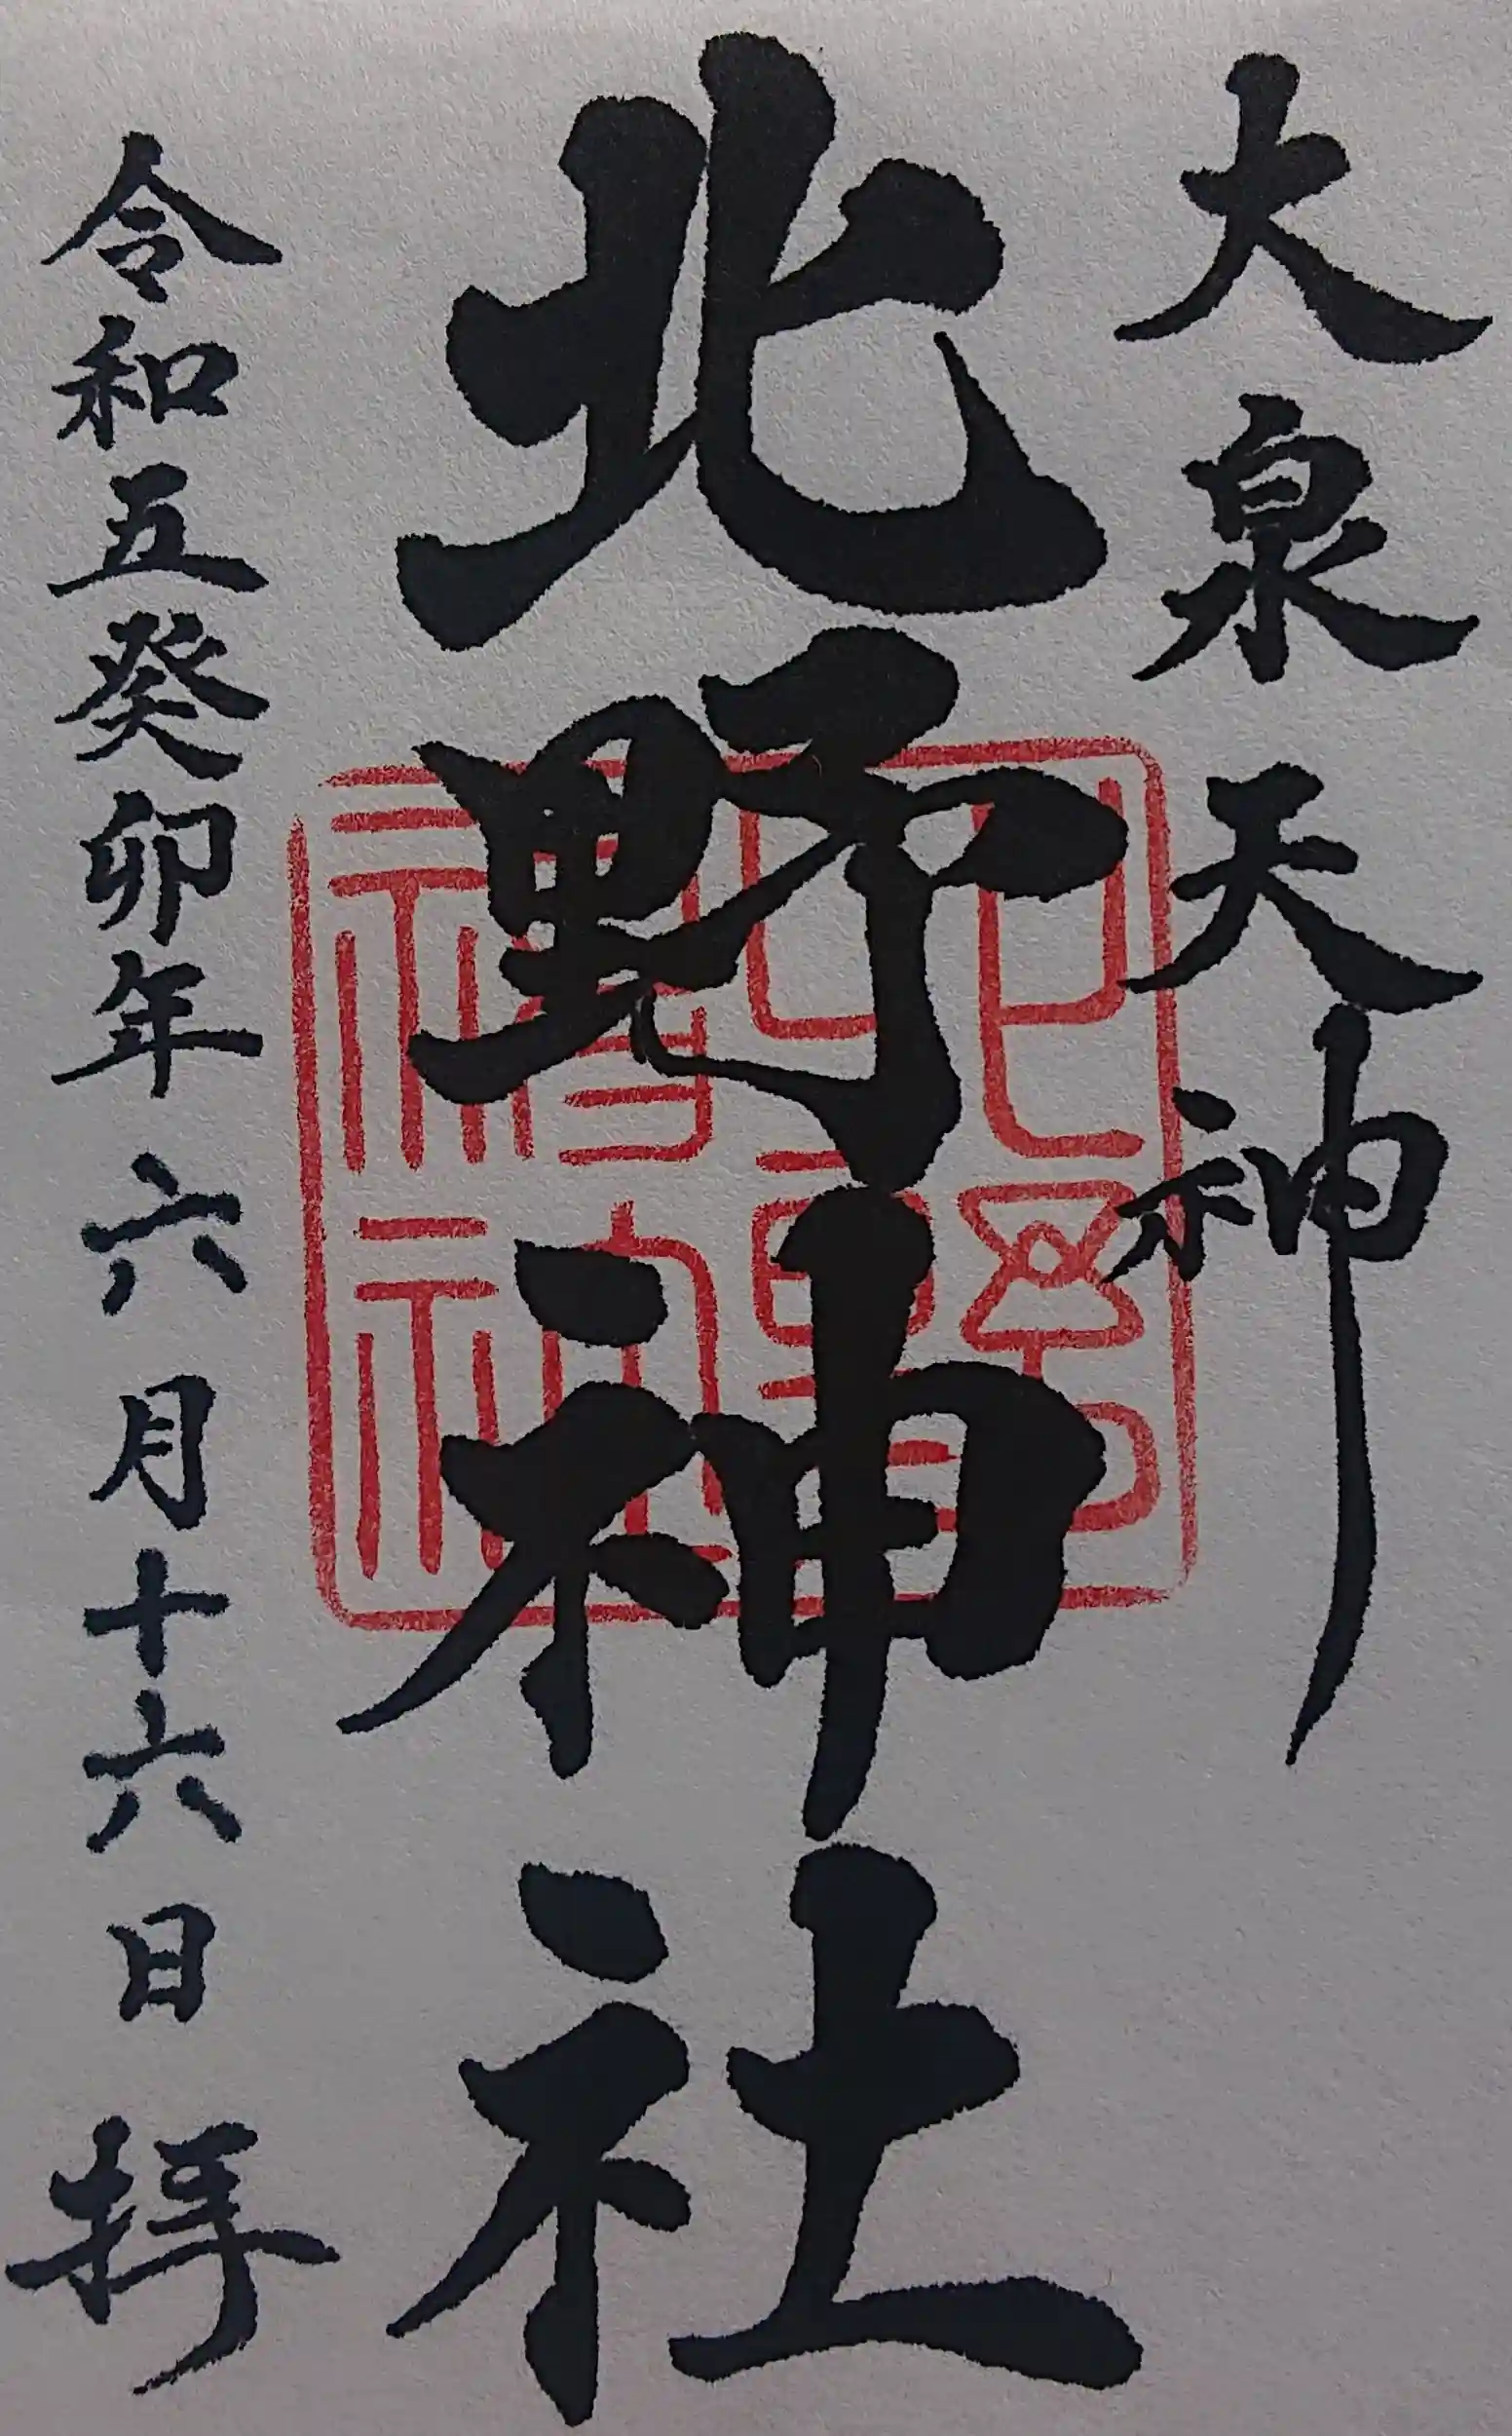 大泉天神
北野神社
令和五癸卯年六月十六日拝